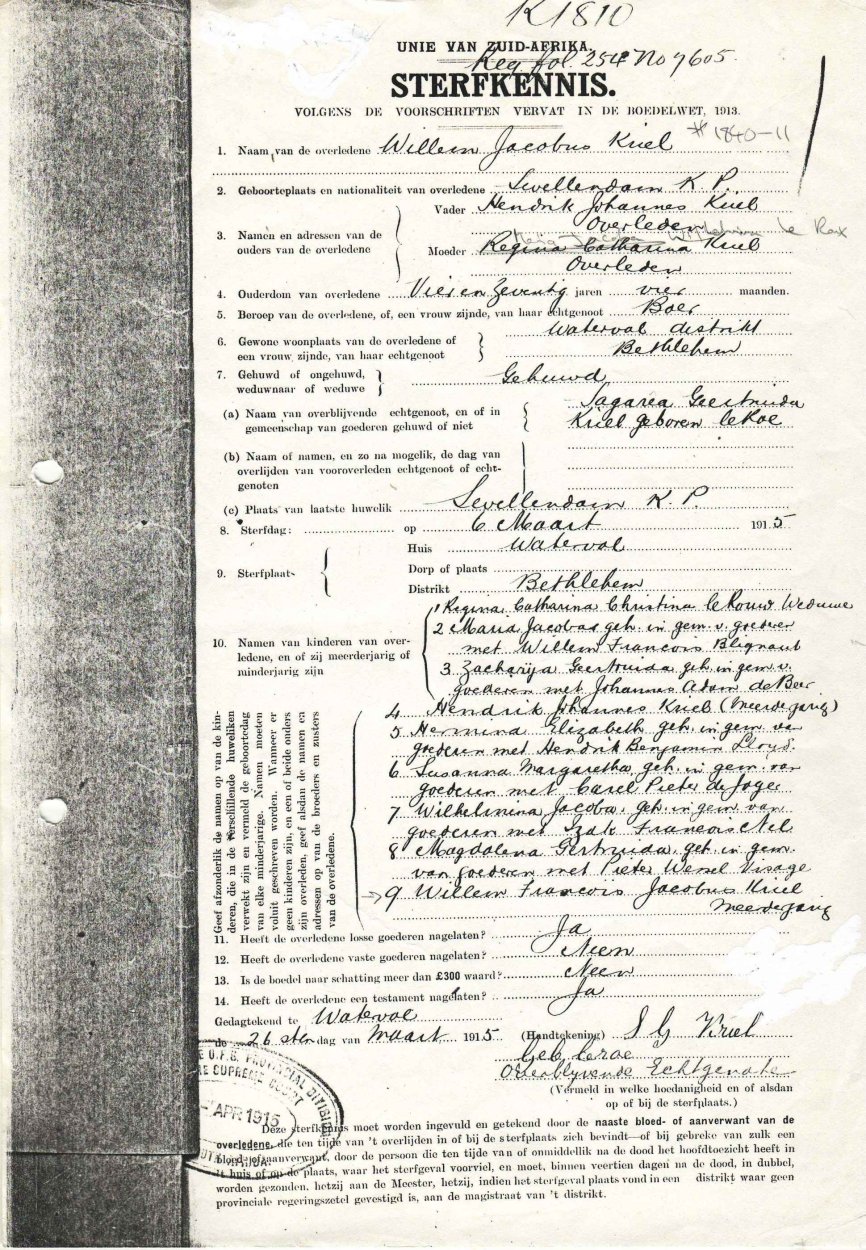 K1810
UNIE VAN ZUID-AFRIKA.
Reg. fol. 254 No 7605.
STERFKENNIS.
VOLGENS DE VOORSCHRIFTEN VERVAT IN DE BOEDELWET, 1913.
* 1840-11
1. Naam van de overledene Willem Jacobus Kriel
2. Geboorteplaats en nationaliteit van overledene Swellendam K.P.
3. Namen en adressen van de ouders van de overledene
Vader Hendrik Johannes Kriel
Overleden
le Roux
Moeder Regina Catharina Kriel
Overleden
4. Ouderdom van overledene Vier en Zeventig jaren vier maanden.
5. Beroep van de overledene, of, een vrouw zijnde, van haar echtgenoot Boer
6. Gewone woonplaats van de overledene of een vrouw zijnde, van haar echtgenoot
Waterval distrikt
Bethlehem
7. Gehuwd of ongehuwd, weduwnaar of weduwe Gehuwd
(a) Naam van overblijvende echtgenoot, en of in gemeenschap van goederen gehuwd of niet
Sagarea Geertruida
Kriel geboren leRoe
(b) Naam of namen, en zo na mogelik, de dag van overlijden van vooroverleden echtgenoot of echtgenoten
(c) Plaats van laatste huwelik Swellendam K.P.
8. Sterfdag: op 6 Maart 1915
9. Sterfplaats
Huis Waterval
Dorp of plaats
Distrikt Bethlehem
10. Namen van kinderen van overledene, en of zij meerderjarig of minderjarig zijn
1 Regina Catharina Christina leRoux Weduwe
2 Maria Jacoba geh. in gem. v. goederen
met Willem Francois Blignaut
3 Zacharya Geertruida geh. in gem. v.
goederen met Johannes Adam de Beer
4 Hendrik Johannes Kriel (Meerderjarig)
5 Hermina Elizabeth geh. in gem. van
goederen met Hendrik Benjamin Lloyd.
6 Susanna Margaretha geh. in gem. van
goederen met Carel Pieter de Jager
7 Wilhelmina Jacoba geh. in gem. van
goederen met Izak Francois Nel
8 Magdalena Gertruida geh. in gem.
van goederen met Pieter Wessel Visage
9 Willem Francois Jacobus Kriel
Meerderjarig
Geef afzonderlik de namen op van de kinderen, die in de verschillende huweliken
verwekt zijn en vermeld de geboortedag
van elke minderjarige. Namen moeten
voluit geschreven worden. Wanneer er
geen kinderen zijn, en een of beide ouders
zijn overleden, geef alsdan de namen en
adressen op van de broeders en zusters
van de overledene.
11. Heeft de overledene losse goederen nagelaten? Ja
12. Heeft de overledene vaste goederen nagelaten? Neen
13. Is de boedel naar schatting meer dan £300 waard? Neen
14. Heeft de overledene een testament nagelaten? Ja
Gedagtekend te Waterval
de 26ste dag van Maart 1915
(Handtekening) S G Kriel
Geb. Leroe
Overblyvende Echtgenote
(Vermeld in welke hoedanigheid en of alsdan
op of bij de sterfplaats.)
O.F.S. PROVINCIAL DIVISION
SUPREME COURT
APR 1915
Deze sterfkennis moet worden ingevuld en getekend door de naaste bloed- of aanverwant van de
overledene, die ten tijde van 't overlijden in of bij de sterfplaats zich bevindt—of bij gebreke van zulk een
bloed- of aanverwant, door de persoon die ten tijde van of onmiddellik na de dood het hoofdtoezicht heeft in
't huis of op de plaats, waar het sterfgeval voorviel, en moet, binnen veertien dagen na de dood, in dubbel,
worden gezonden, hetzij aan de Meester, hetzij, indien het sterfgeval plaats vond in een distrikt waar geen
provinciale regeringszetel gevestigd is, aan de magistraat van 't distrikt.